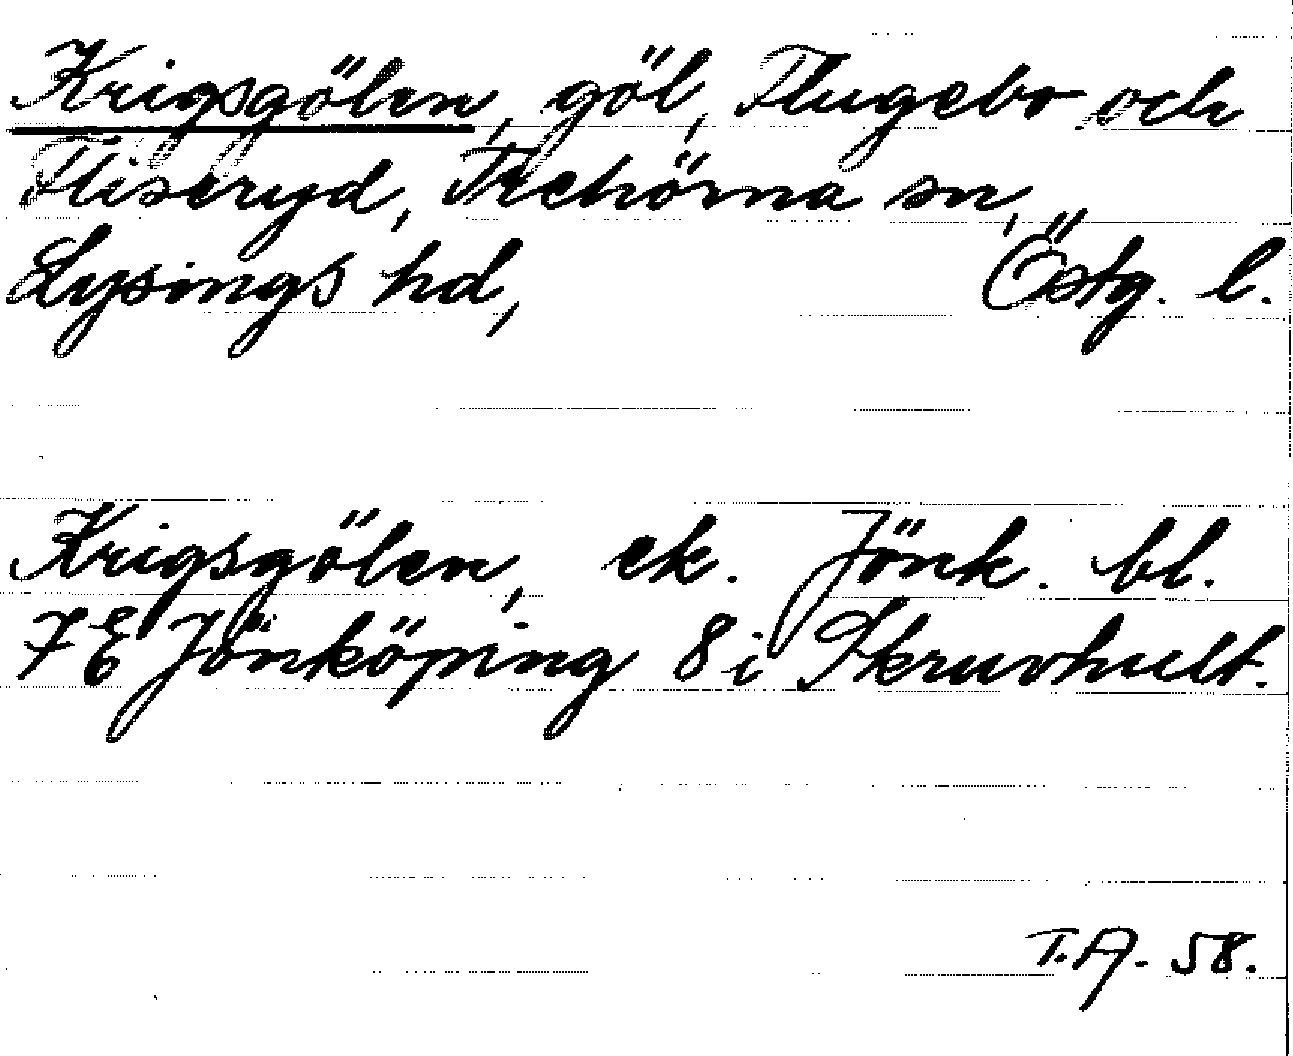 Krigsgölen, göl, Flugebo och
Fliseryd, Trehörna sn,
Lysings hd, Östg. l.
Krigsgölen, ek. Jönk. bl.
7E Jönköping 8 i Skruvhult.
T.A. 58.